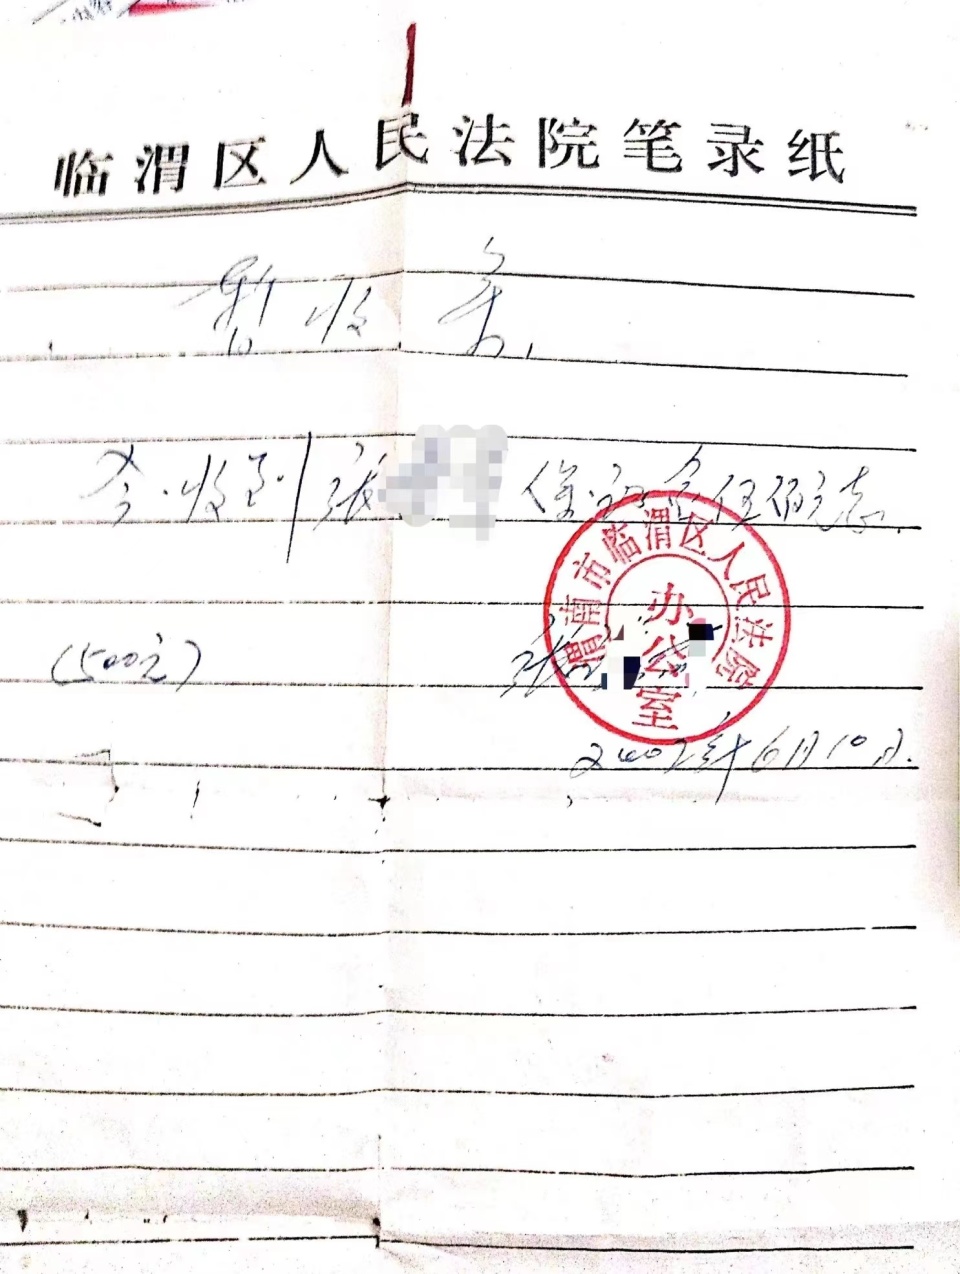 临渭区人民法院笔录纸
暂收条
今收到张 保证金伍佰元壳
(500元)
张
渭南市临渭区人民法院
办公室
2002年6月10日.